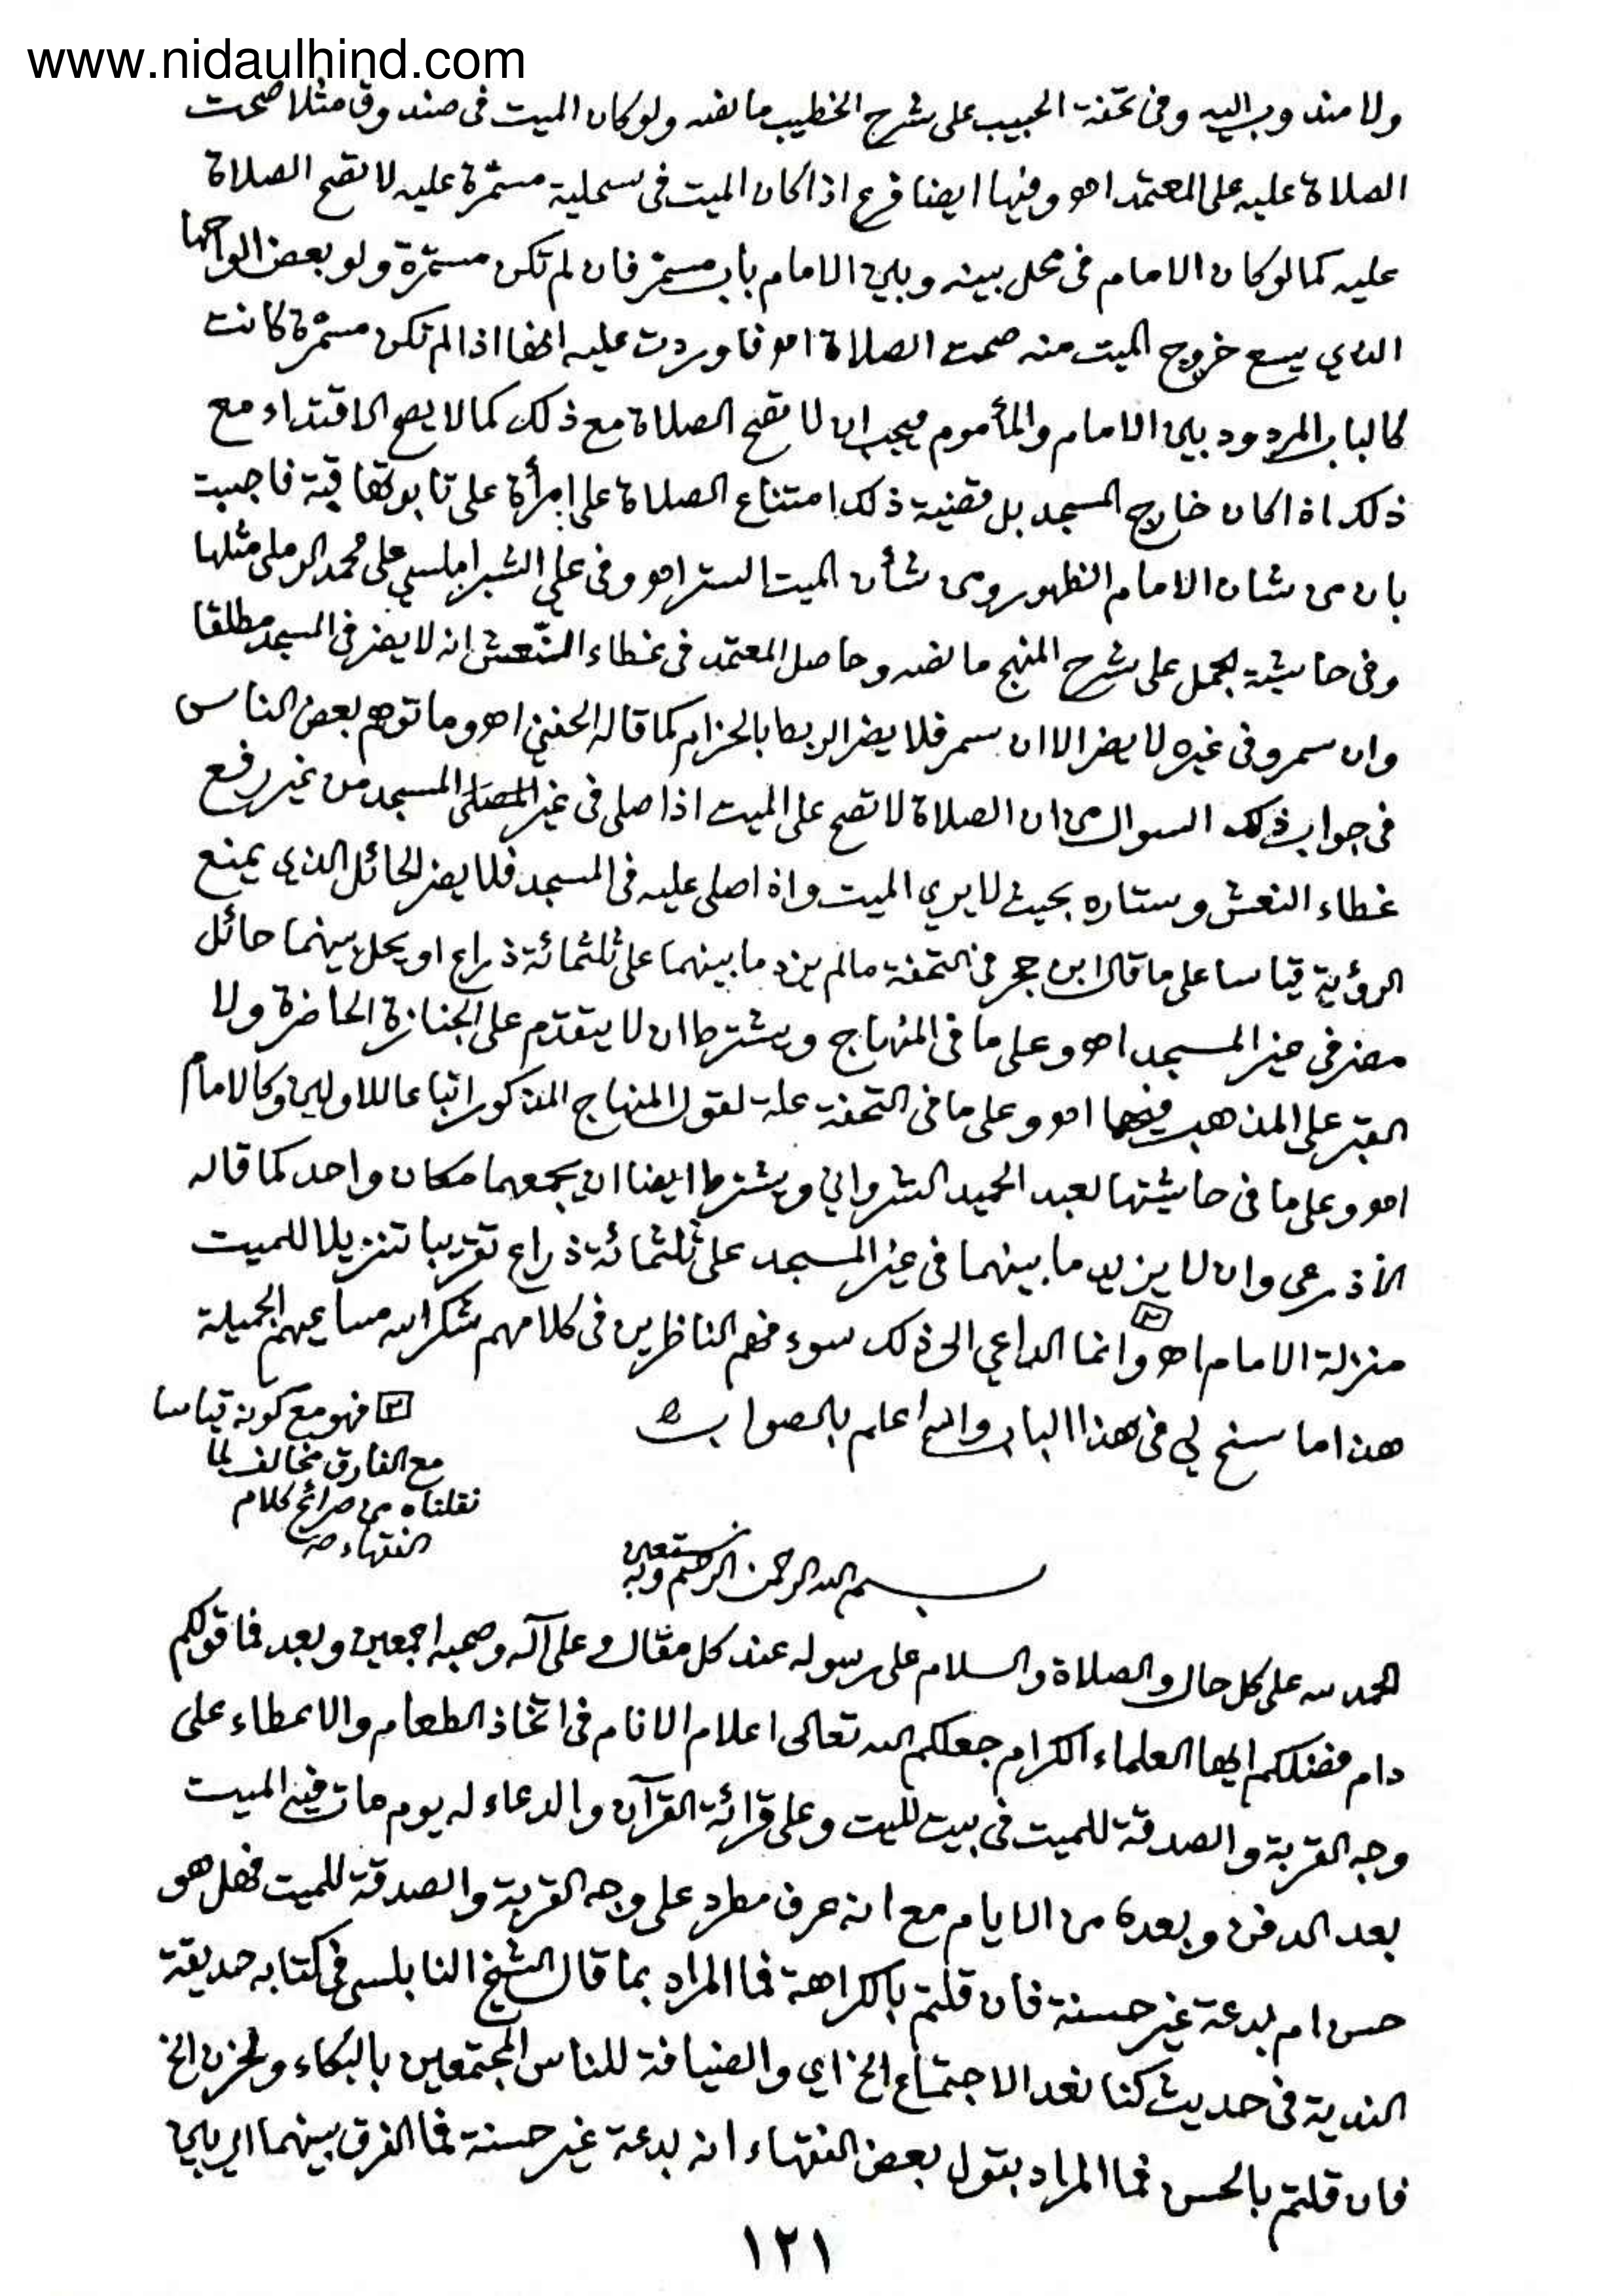 www.nidaulhind.com
ولا مندوب اليه وفى تحفة الحبيب على شرح الخطيب ما نصه ولو كان الميت فى صندوق مثلا صحت
الصلاة عليه على المعتمد اهـ وفيها ايضا فرع اذا كان الميت فى سحلية مسمّرة عليه لا تصح الصلاة
عليه كما لو كان الامام فى محل بينه وبين الامام باب مسمّر فان لم تكن مسمّرة ولو بعض الواحها
الذي يسع خروج الميت منه صحت الصلاة اهـ فاوردت عليه انها اذا لم تكن مسمّرة كانت
كالباب المردود بين الامام والمأموم فيجب ان لا تصح الصلاة مع ذلك كما لا يصح الاقتداء مع
ذلك اذا كان خارج المسجد بل قضية ذلك امتناع الصلاة على إمرأة على تابوتها قبة فاجبت
بان من شان الامام الظهور ومن شأن الميت الستر اهـ وفى علي الشبراملسي على محمد الرملى مثلها
وفى حاشية الجمل على شرح المنهج ما نصه وحاصل المعتمد فى غطاء النّعش انه لا يضر فى المسجد مطلقا
وان سمر وفى غيره لا يضر الا ان سمر فلا يضر الربط بالحزام كما قاله الحفني اهـ وما توهم بعض الناس
فى جواب ذلك السوال من ان الصلاة لا تصح على الميت اذا صلى فى غير المسجد من غير رفع
غطاء النعش وستاره بحيث لا يري الميت واذا صلى عليه فى المسجد فلا يضر الحائل الذى يمنع
الرؤية قياسا على ما قال ابن حجر فى التحفة ما لم يزد ما بينهما على ثلثمائة ذراع او يحل بينهما حائل
مضر في غير المسجد اهـ وعلى ما فى المنهاج ويشترط ان لا يتقدم على الجنازة الحاضرة ولا
القبر على المذهب فيهما اهـ وعلى ما فى التحفة علة لقول المنهاج المذكور اتباعا للاولين وكالامام
اهـ وعلى ما فى حاشيتها لعبد الحميد الشرواني ويشترط ايضا ان يجمعهما مكان واحد كما قاله
الأذرعى وان لا يزيد ما بينهما فى غير المسجد على ثلثمائة ذراع تقريبا تنزيلا للميت
منزلة الامام اهـ وانما الداعي الى ذلك سوء فهم الناظرين فى كلامهم شكر الله مساعيهم الجميلة
هذا ما سنح لي فى هذا الباب والله اعلم بالصواب
فهو مع كونه قياسا
مع الفارق مخالف لما
نقلناه من صرائح كلام
الفقهاء
بسم الله الرحمن الرحيم وبه نستعين
الحمد لله على كل حال والصلاة والسلام على رسوله عند كل مقال وعلى آله وصحبه اجمعين وبعد فما قولكم
دام فضلكم ايها العلماء الكرام جعلكم الله تعالى اعلام الانام فى اتخاذ الطعام والاعطاء على
وجه القربة والصدقة للميت فى بيت للميت وعلى قرائة القرآن والدعاء له يوم مات فيه الميت
بعد الدفن وبعده من الايام مع انه عرف مطرد على وجه القربة والصدقة للميت فهل هو
حسن ام بدعة غير حسنة فان قلتم بالكراهة فما المراد بما قال الشيخ النابلسى فى كتابه حديقة
الندية فى حديث كنا نعد الاجتماع الخ اي والضيافة للناس المجتمعين بالبكاء والحزن الخ
فان قلتم بالحسن فما المراد بقول بعض الفقهاء انه بدعة غير حسنة فما الفرق بينهما اى بين
١٢١